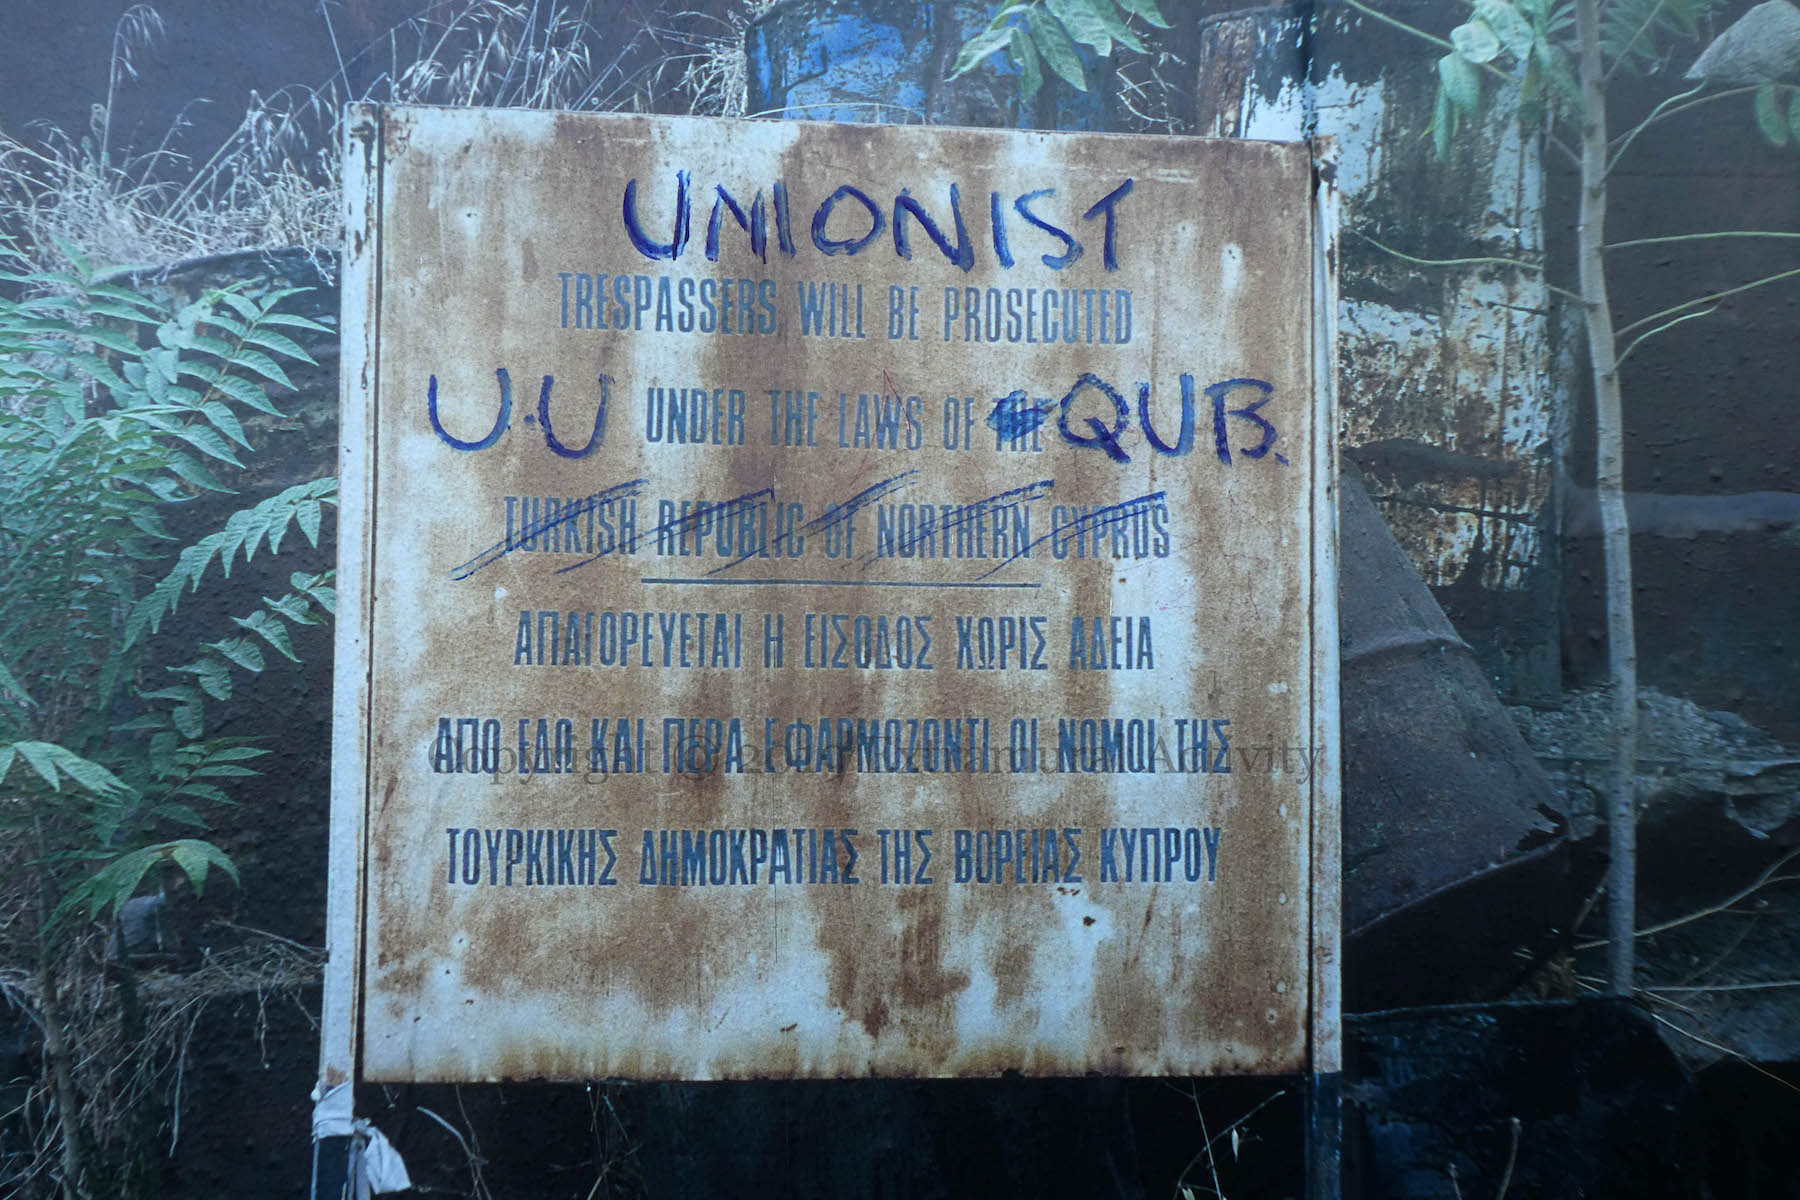 UNIONIST
TRESPASSERS WILL BE PROSECUTED
U.U UNDER THE LAWS OF THE QUB.
TURKISH REPUBLIC OF NORTHERN CYPRUS
ΑΠΑΓΟΡΕΥΕΤΑΙ Η ΕΙΣΟΔΟΣ ΧΩΡΙΣ ΑΔΕΙΑ
ΑΠΟ ΕΔΩ ΚΑΙ ΠΕΡΑ ΕΦΑΡΜΟΖΟΝΤΙ ΟΙ ΝΟΜΟΙ ΤΗΣ
Copyright © Extramural Activity
ΤΟΥΡΚΙΚΗΣ ΔΗΜΟΚΡΑΤΙΑΣ ΤΗΣ ΒΟΡΕΙΑΣ ΚΥΠΡΟΥ